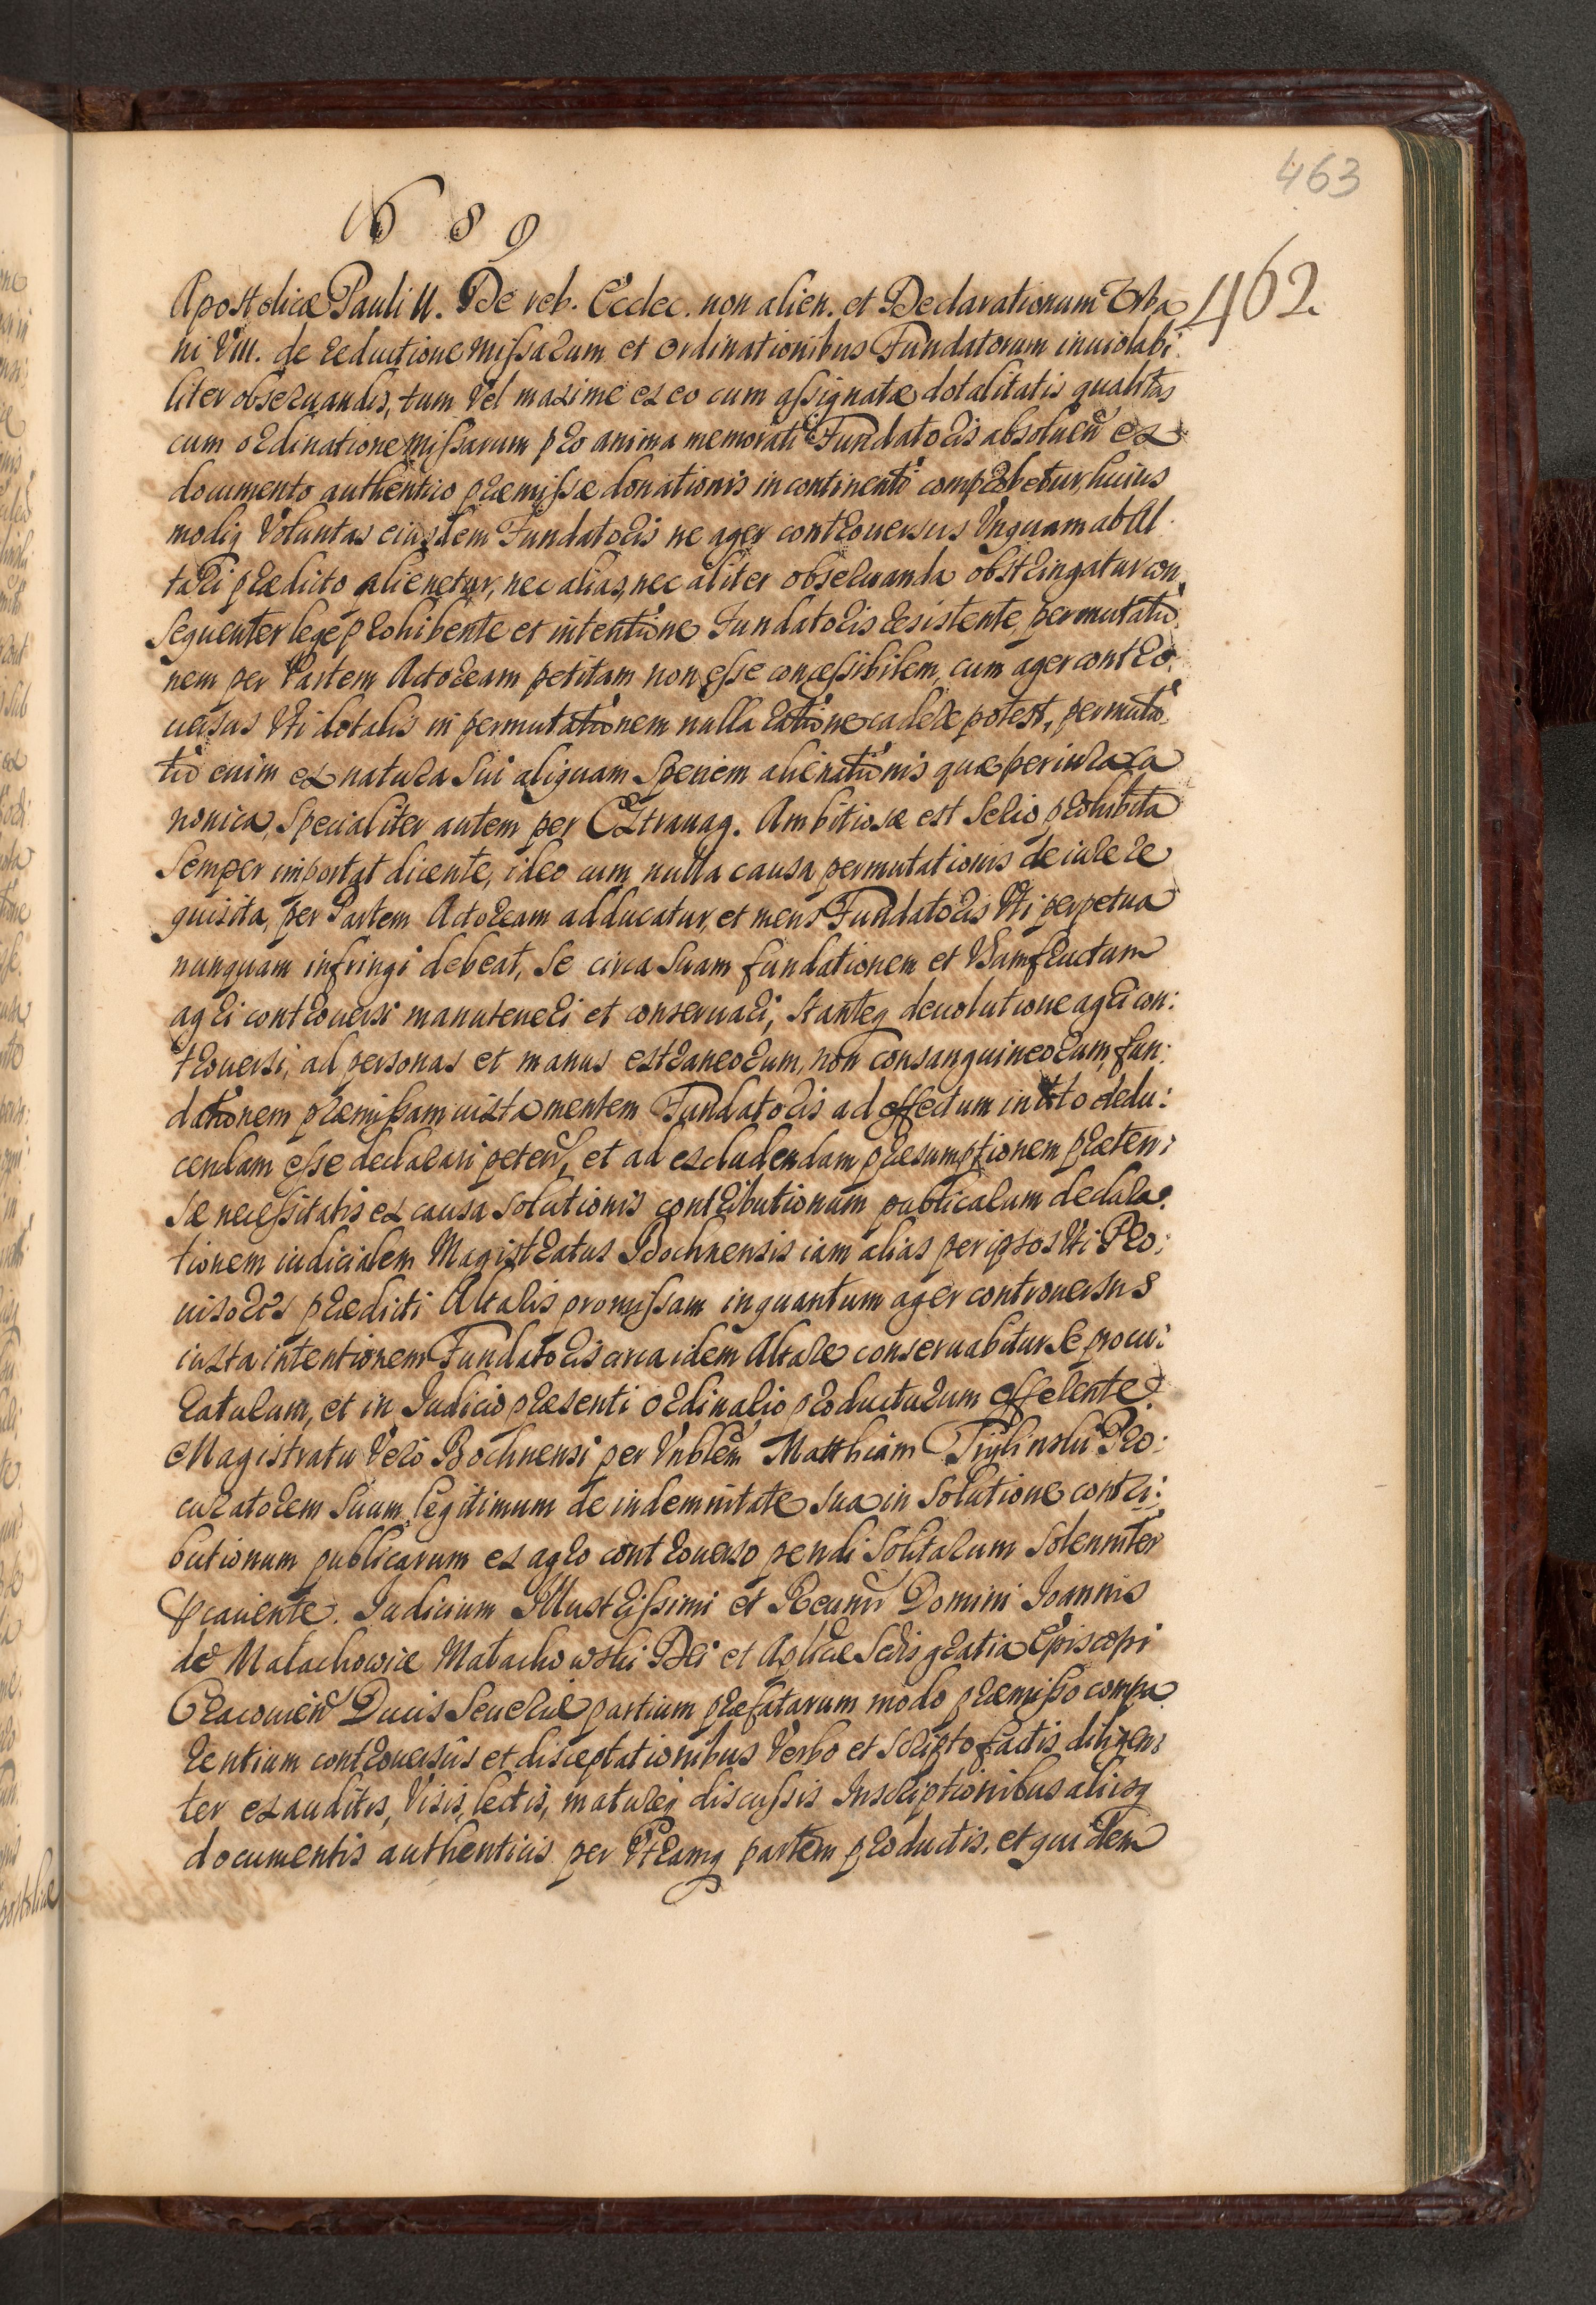 463
1689
462.
Apostolicæ Pauli II. De reb. Eccles. non alien. et Declarationum Urba
ni VIII. de reductione missarum et ordinationibus Fundatorum inuiolabi:
liter obseruandis, tum vel maxime ex eo cum assignatæ dotalitatis qualitas
cum ordinatione missarum pro anima memorati Fundatoris absoluen̄ ex
documento authentico præmissæ donationis incontinenti comprobetur, huius
modiq Voluntas eiusdem Fundatoris ne ager controuersus Unquam ab Al:
tari prædicto alienetur, nec alias, nec aliter obseruanda obstringatur con:
sequenter lege prohibente et intentione Fundatoris resistente, permutatio:
nem per Partem Actoream petitam non esse concessibilem, cum ager contro:
uersus Uti dotalis in permutationem nulla ratione cadere potest, permuta:
tio enim ex natura sui aliquam speciem alienationis quæ per iura ca
nonica, specialiter autem per Extrauag. Ambitiosæ est serio prohibita
semper importat dicente, ideo cum nulla causa permutationis de iure re
quisita, per Partem Actoream adducatur, et mens Fundatoris Uti perpetua
nunquam infringi debeat, se circa suam fundationem et Usumfructum
agri controuersi manuteneri et conseruari, stanteq deuolutione agri con:
trouersi, ad personas et manus extraneorum, non consanguineorum, fun:
dationem præmissam iuxta mentem Fundatoris ad effectum in toto dedu:
cendam esse declarari peten̄, et ad excludendam præsumptionem præten:
sæ necessitatis ex causa solutionis contributionum publicarum declara:
tionem iudicialem Magistratus Bochnensis iam alias per ipsos Uti Pro:
uisores prædicti Altaris promissam inquantum ager controuersus
iuxta intentionem Fundatoris circa idem Altare conseruabitur se procu:
raturum, et in Iudicio præsenti ordinario producturum offerente.
Magistratu Vero Bochnensi per Matthiam Pro:
curatorem suum legitimum de indemnitate sua in solutione contri:
butionum publicarum ex agro controuerso pendi solitarum solenniter
præcauente. Iudicium Illustrissimi et Domini Ioannis
de Małachowice Małachowski Dei et Aplicæ Sedis gratia Episcopi
Cracouien̄ Ducis Seueriæ partium præfatarum modo præmisso compa
rentium controuersiis et disceptationibus Verbo et scripto factis diligen:
ter exauditis, Visis, lectis, matureq discussis Inscriptionibus aliisq
documentis authenticis per Utramq partem productis, et quidem